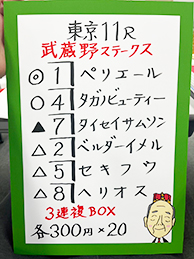 東京11R
武蔵野ステークス
◎ 1 ペリエール
○ 4 タガノビューティー
▲ 7 タイセイサムソン
△ 2 ベルダーイメル
△ 5 セキフウ
△ 8 ヘリオス
3連複BOX
各300円×20